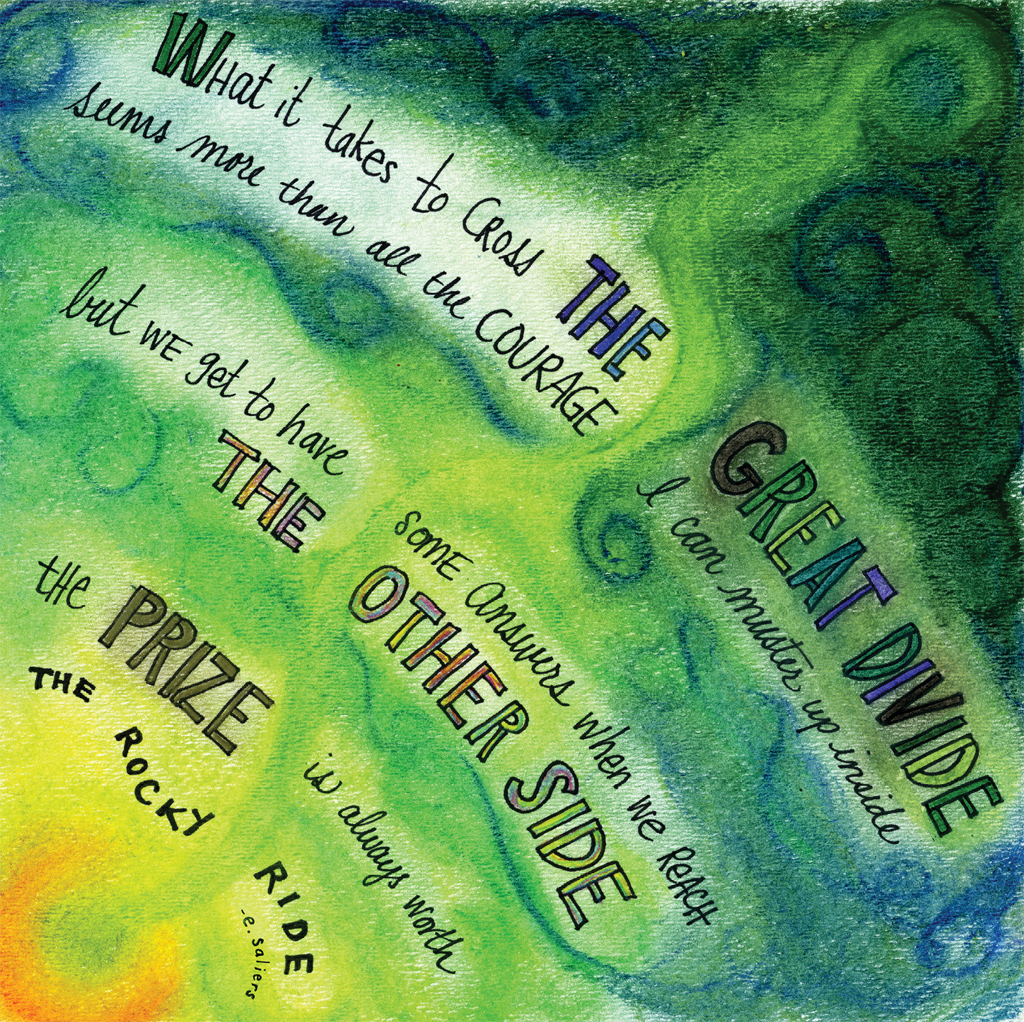 WHat it takes to CROSS THE GREAT DIVIDE
seems more than all the COURAGE I can muster up inside
but WE get to have SOME answers when we REACH
THE OTHER SIDE
the PRIZE is always worth
THE ROCKY RIDE
-e. saliers